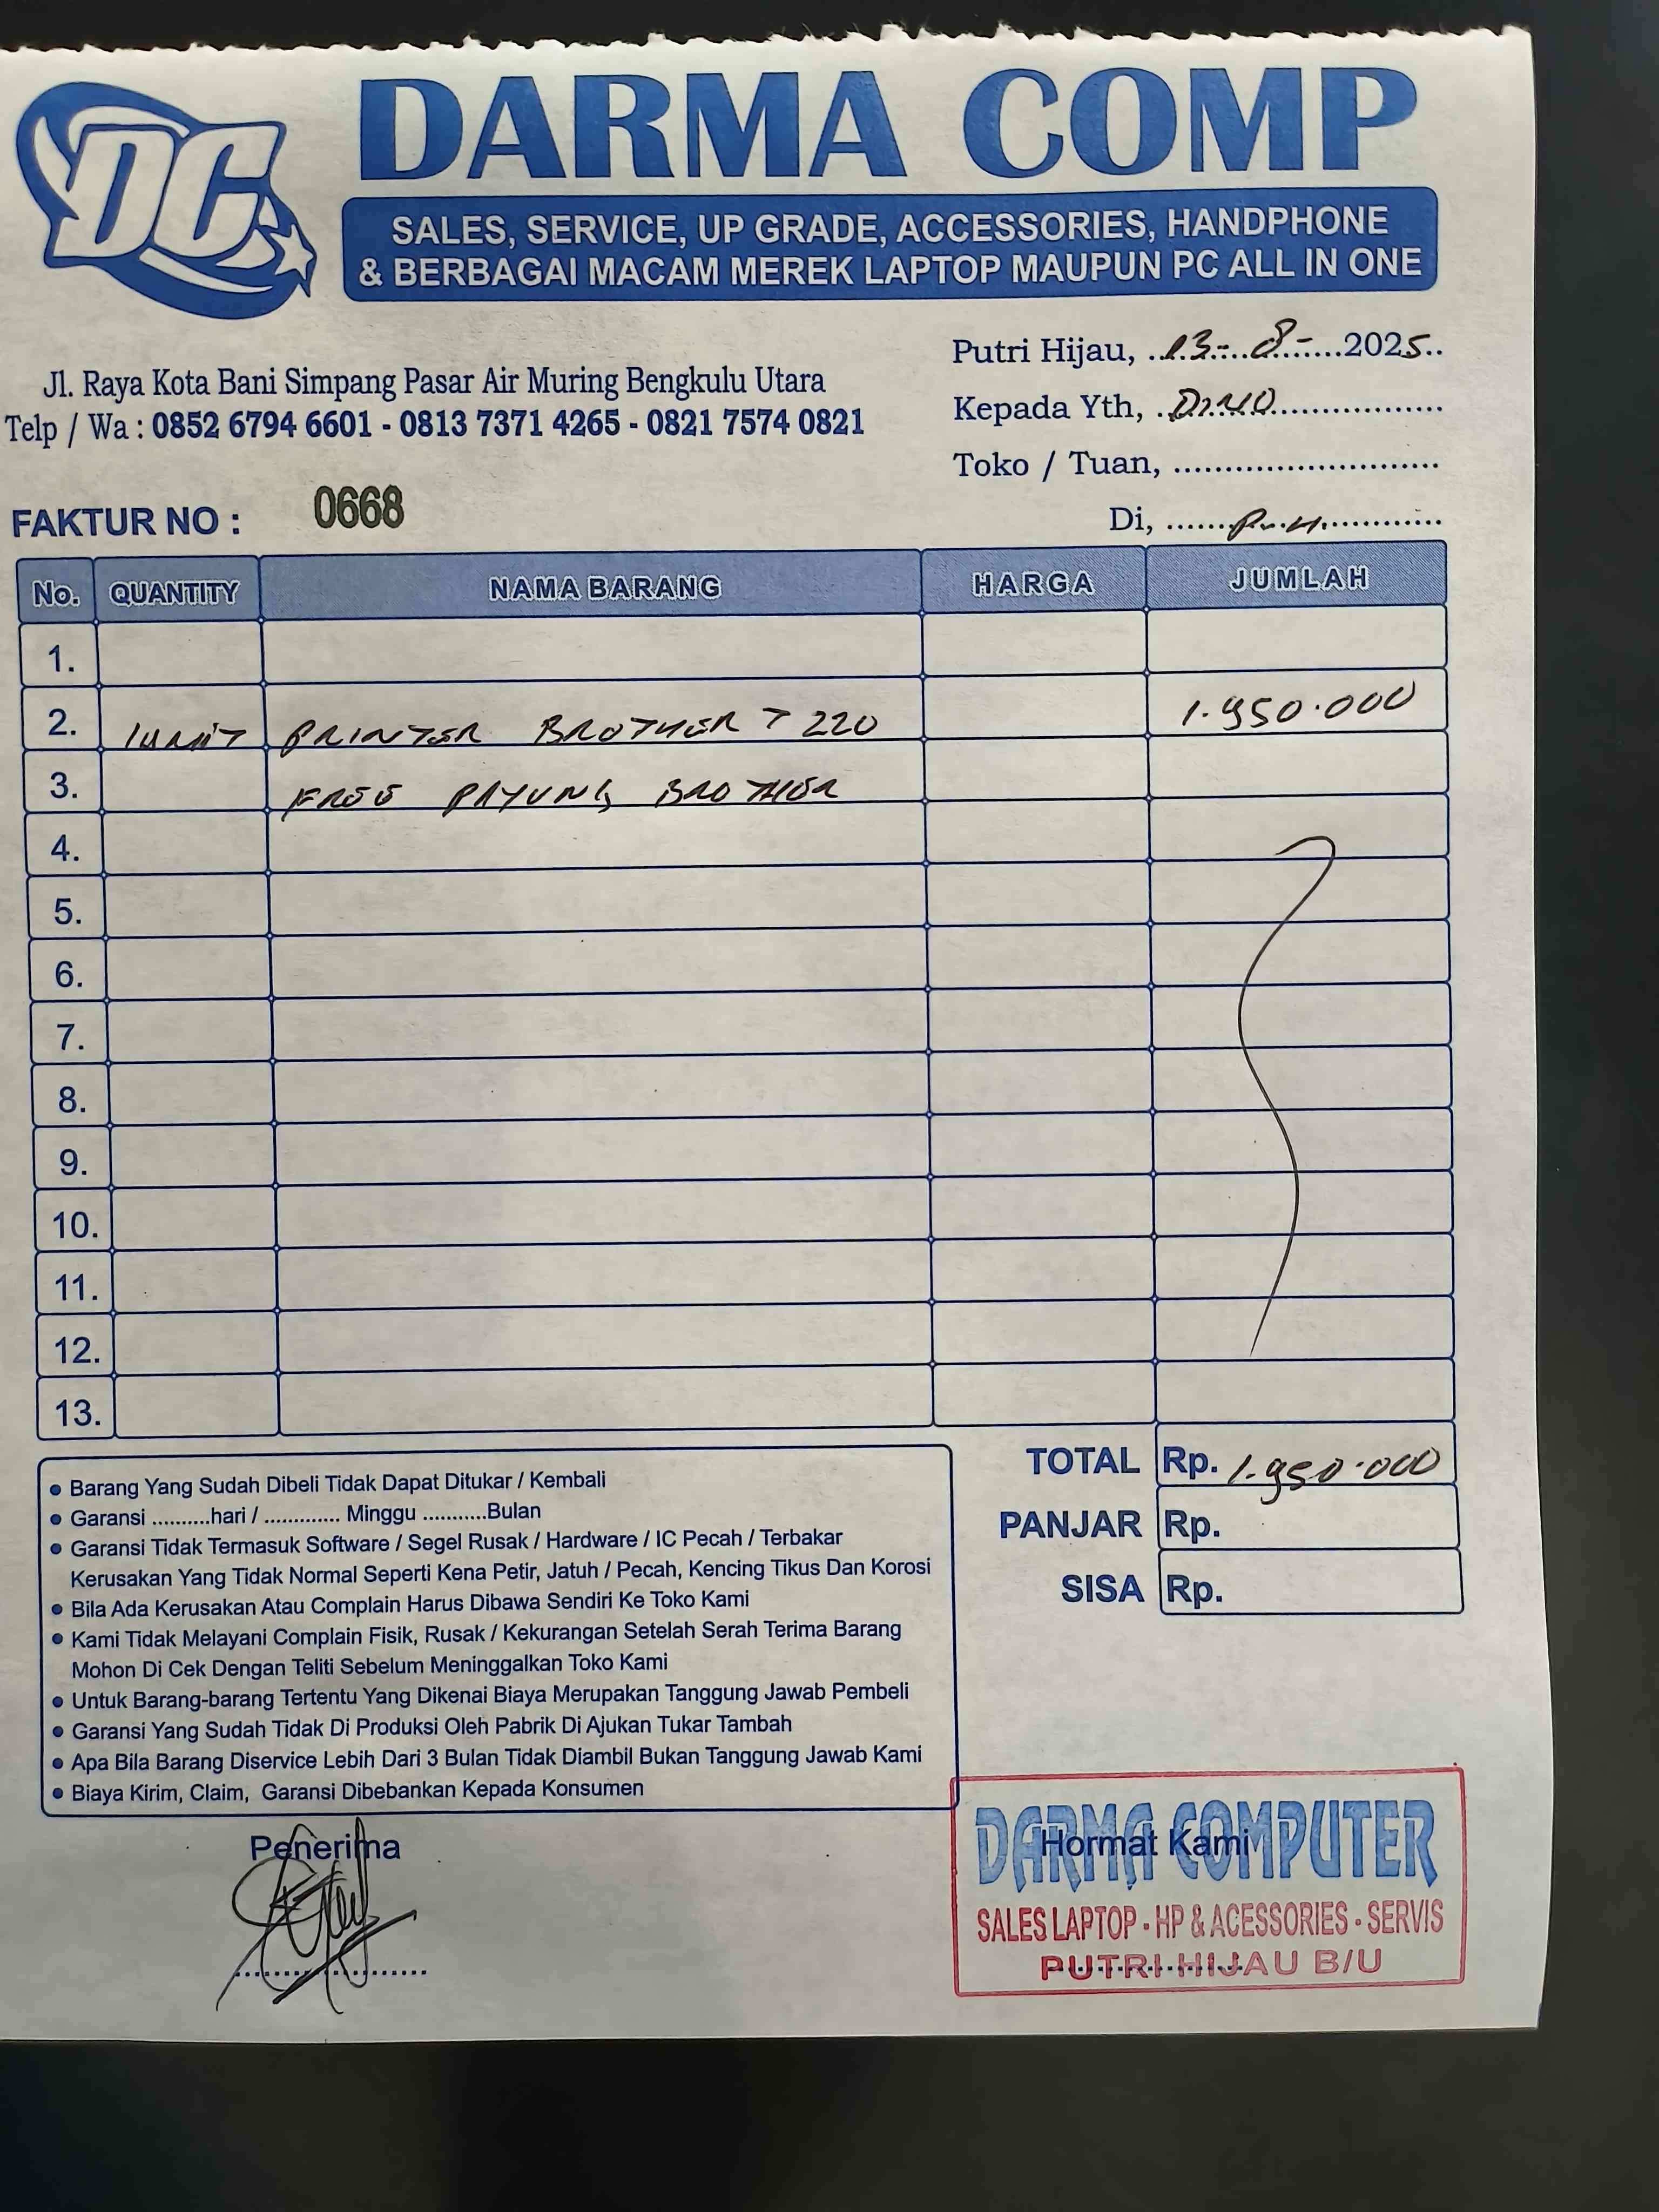 DC
DARMA COMP
SALES, SERVICE, UP GRADE, ACCESSORIES, HANDPHONE
& BERBAGAI MACAM MEREK LAPTOP MAUPUN PC ALL IN ONE
Jl. Raya Kota Bani Simpang Pasar Air Muring Bengkulu Utara
Telp / Wa : 0852 6794 6601 - 0813 7371 4265 - 0821 7574 0821
Putri Hijau, 13-8-2025
Kepada Yth, DINO
Toko / Tuan,
Di, P.H
FAKTUR NO : 0668
No. QUANTITY NAMA BARANG HARGA JUMLAH
1.
2. 1 UNIT PRINTER BROTHER T 220 1.950.000
3. FREE PAYUNG BROTHER
4.
5.
6.
7.
8.
9.
10.
11.
12.
13.
TOTAL Rp. 1.950.000
PANJAR Rp.
SISA Rp.
• Barang Yang Sudah Dibeli Tidak Dapat Ditukar / Kembali
• Garansi ..........hari / ............. Minggu ...........Bulan
• Garansi Tidak Termasuk Software / Segel Rusak / Hardware / IC Pecah / Terbakar
Kerusakan Yang Tidak Normal Seperti Kena Petir, Jatuh / Pecah, Kencing Tikus Dan Korosi
• Bila Ada Kerusakan Atau Complain Harus Dibawa Sendiri Ke Toko Kami
• Kami Tidak Melayani Complain Fisik, Rusak / Kekurangan Setelah Serah Terima Barang
Mohon Di Cek Dengan Teliti Sebelum Meninggalkan Toko Kami
• Untuk Barang-barang Tertentu Yang Dikenai Biaya Merupakan Tanggung Jawab Pembeli
• Garansi Yang Sudah Tidak Di Produksi Oleh Pabrik Di Ajukan Tukar Tambah
• Apa Bila Barang Diservice Lebih Dari 3 Bulan Tidak Diambil Bukan Tanggung Jawab Kami
• Biaya Kirim, Claim, Garansi Dibebankan Kepada Konsumen
Penerima
Hormat Kami
DARMA COMPUTER
SALES LAPTOP - HP & ACESSORIES - SERVIS
PUTRI HIJAU B/U